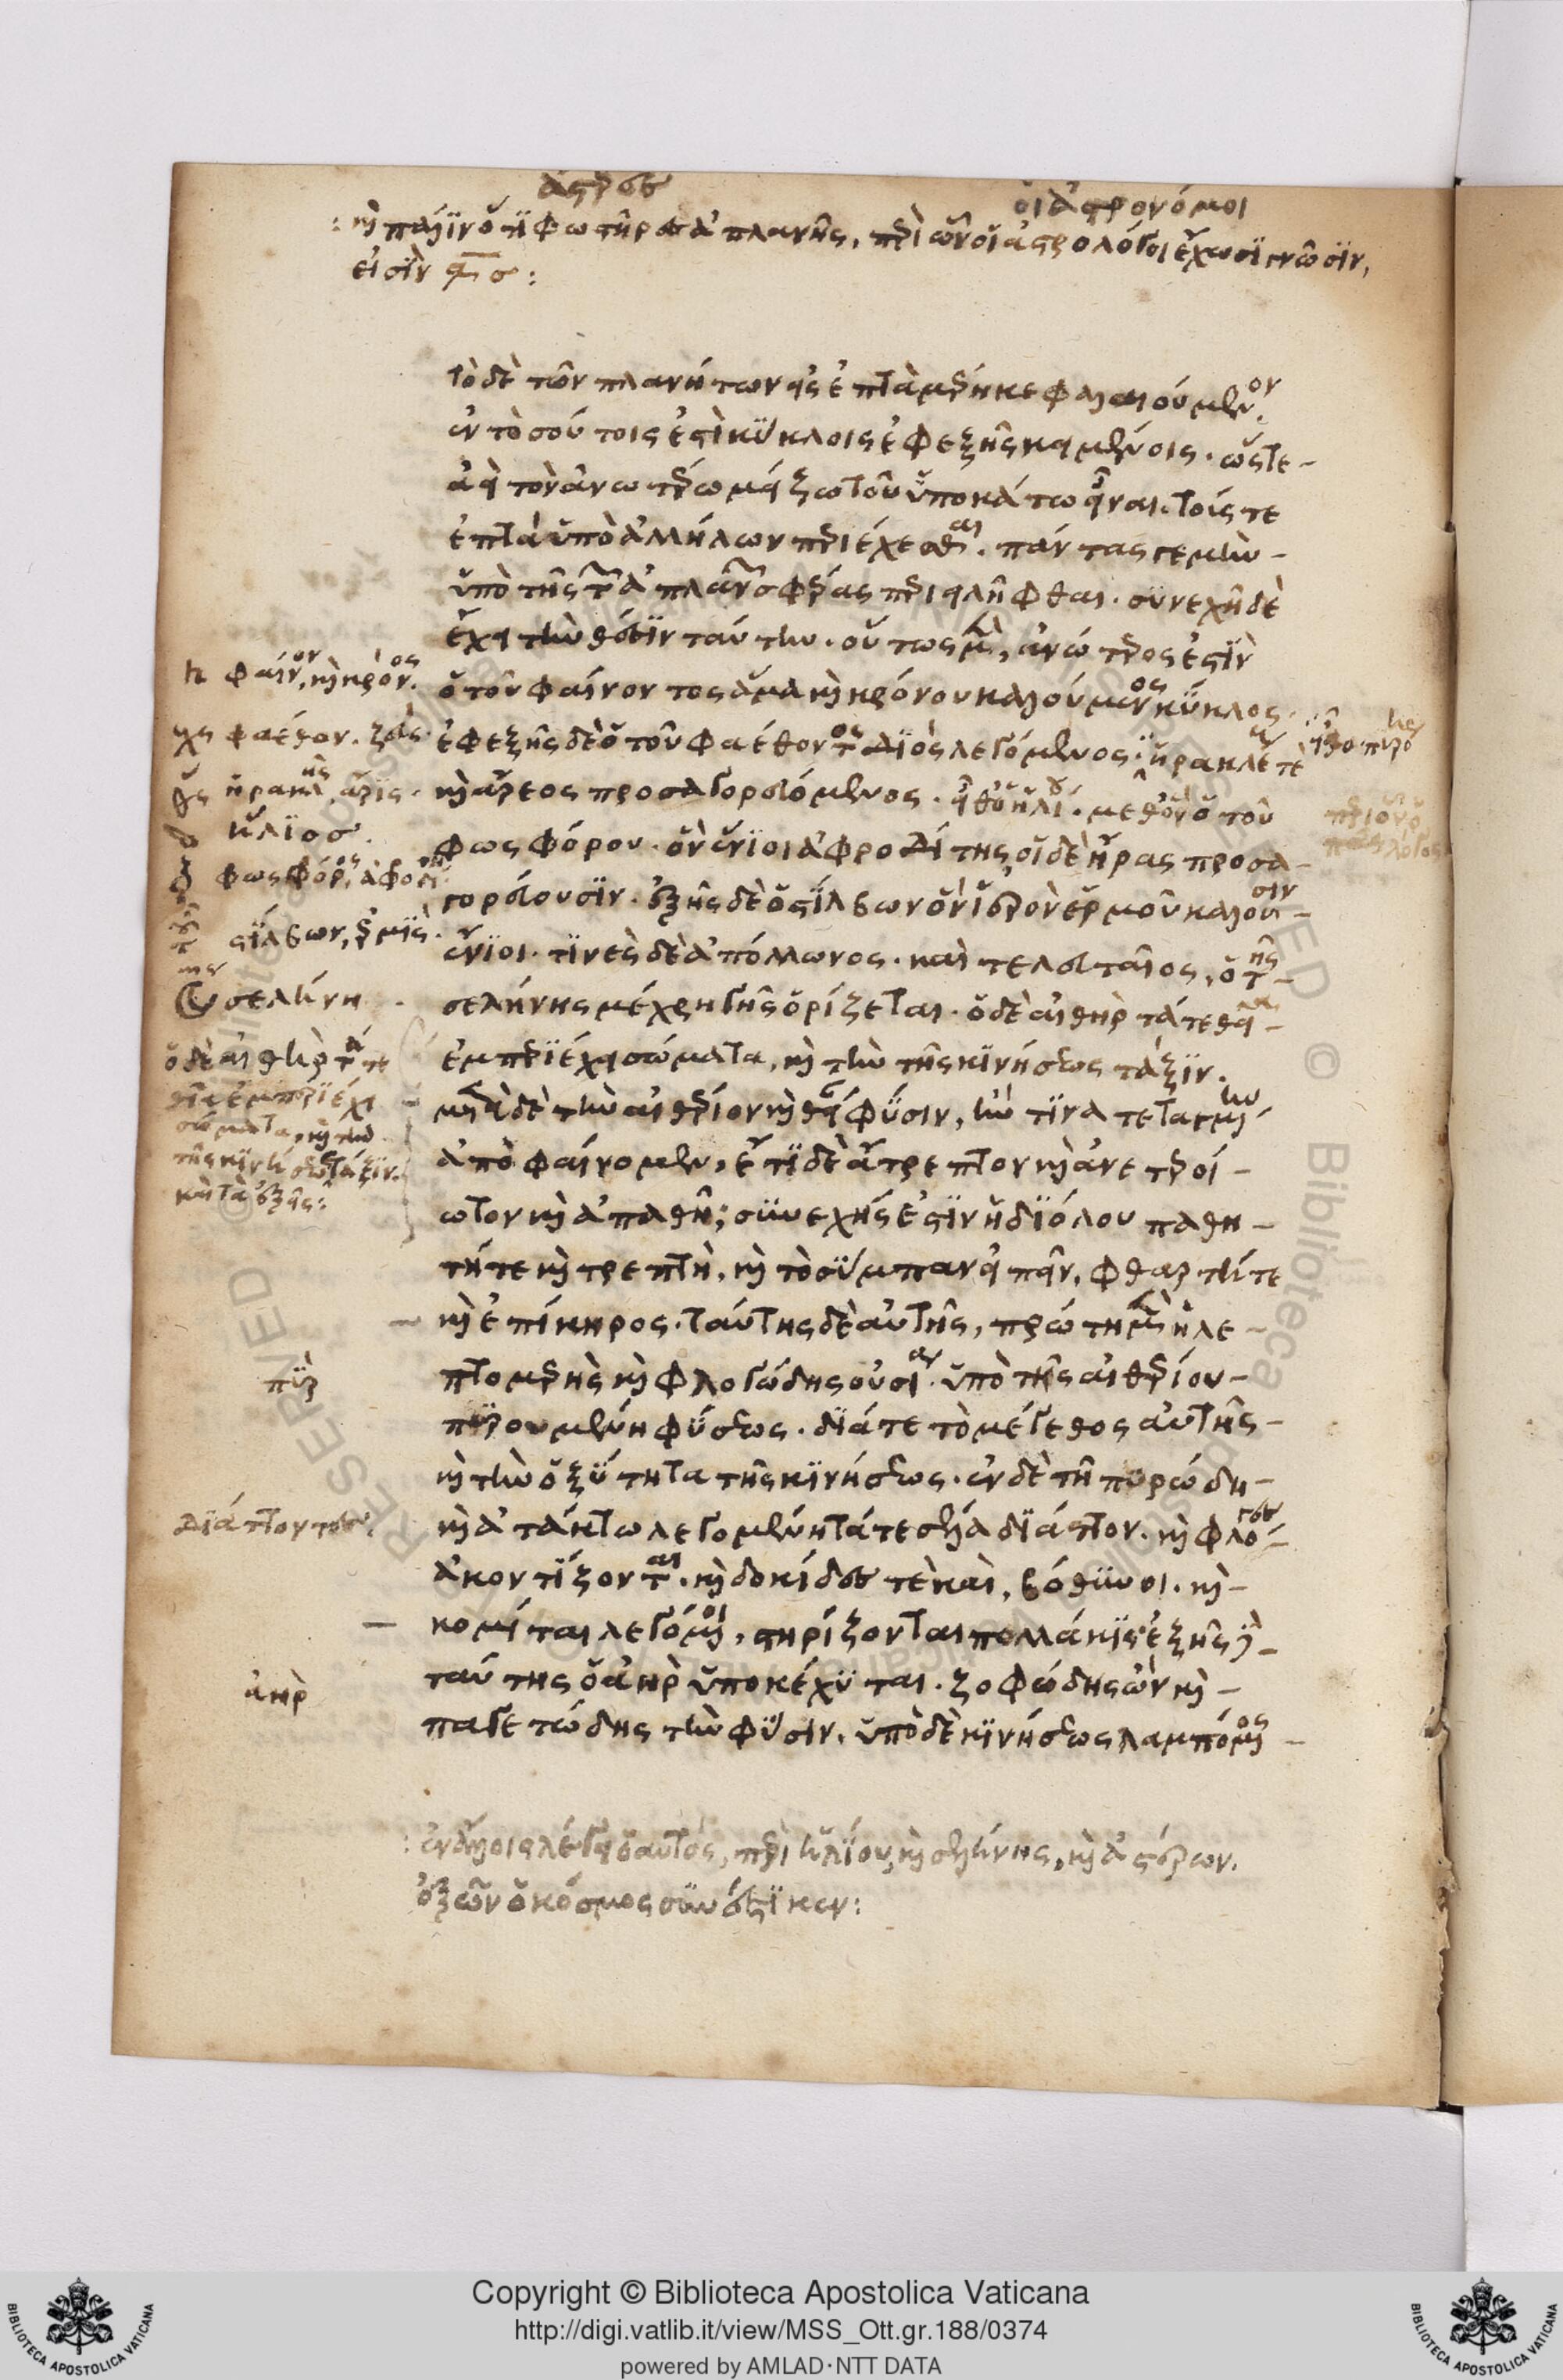 ἀστέρες
οἱ ἀστρονόμοι
: καὶ πάλιν ὅτι φωστῆρες ἀπλανῆς, περὶ ὧν οἱ ἀστρολόγοι ἔχωσι γνῶσιν,
εἰσὶν
τὸ δὲ τῶν πλανήτων εἰς ἑπτὰ μέρη κεφαλαιούμενον
ἐν τοσούτοις ἐστὶ κύκλοις ἐφεξῆς κειμένοις. ὥστε
ἀεὶ τὸν ἀνωτέρω μείζω τοῦ ὑποκάτω εἶναι. τούς τε
ἑπτὰ ὑπὸ ἀλλήλων περιέχεσθαι. πάντας γε μὴν
ὑπὸ τῆς τῶν ἀπλανῶν σφαίρας περιειλῆφθαι. συνεχῆ δὲ
ἔχει τὴν θέσιν ταύτην. οὕτως μὲν, ἀνώτερος ἐστὶν
ὁ τοῦ φαίνοντος ἅμα καὶ κρόνου καλούμενος κύκλος.
ἐφεξῆς δὲ ὁ τοῦ φαέθοντος διὸς λεγόμενος. ἡρακλέους τὲ
καὶ ἄρεος προσαγορευόμενος. εἶθ' ὁ ἡλίου. μεθ' ὃν ὁ τοῦ
φωσφόρου. ὃν ἔνιοι ἀφροδίτης, οἱ δὲ ἥρας προσα-
γορεύουσιν. ἑξῆς δὲ ὁ στίλβων ὃν ἱερὸν ἑρμοῦ καλοῦσιν
ἔνιοι. τινὲς δὲ ἀπόλλωνος. καὶ τελευταῖος, ὁ τῆς
σελήνης μέχρη γῆς ὁρίζεται. ὁ δὲ αἰθὴρ τά τε θεῖα
ἐμπεριέχει σώματα, καὶ τὴν τῆς κινήσεως τάξιν.
μετὰ δὲ τὴν αἰθέριον καὶ θείαν φύσιν, ἥν τινα τεταγμένην
ἀποφαίνομεν, ἔτι δὲ ἄτρεπτον καὶ ἀνετεροί-
ωτον καὶ ἀπαθῆ; συνεχής ἐστιν ἡ διόλου παθη-
τή τε καὶ τρεπτὴ, καὶ τὸ σύμπαν εἰπεῖν, φθαρτή τε
καὶ ἐπίκηρος. ταύτης δὲ αὐτῆς, πρώτη μὲν ἡ λε-
πτομερὴς καὶ φλογώδης οὐσία. ὑπὸ τῆς αἰθερίου
πυρουμένη φύσεως. διά τε τὸ μέγεθος αὐτῆς
καὶ τὴν ὀξύτητα τῆς κινήσεως. ἐν δὲ τῇ πυρώδη
καὶ ἀτάκτω λεγομένη τά τε σέλα διάπτον. καὶ φλόγες
ἀκοντίζονται. καὶ δοκίδες τὲ καὶ, βόθυνοι. καὶ
κομῆται λεγόμενοι, στηρίζονται πολλάκις. ἑξῆς δὲ
ταύτης ὁ ἀὴρ ὑποκέχυται. ζοφώδης ὢν καὶ
παγετώδης τὴν φύσιν. ὑπὸ δὲ κινήσεως λαμπόμενος
φαίνον, καὶ κρόνος.
φαέθον. ζεὺς.
ἡρακλῆς, ἄρις.
ἥλιος.
φωσφόρος, ἀφροδίτη
στίλβων, ἑρμῆς.
σελήνη
ὁ δὲ αἰθὴρ τά τε
θεῖα ἐμπεριέχει
σώματα, καὶ τὴν
τῆς κινήσεως τάξιν.
καὶ τὰ ἑξῆς:
πῦρ
διάπτοντες.
ἀὴρ
περὶ οὗ ὁ
πᾶς λόγος
: ἐν ἄλλοις λέγει ὁ αὐτὸς, περὶ ἡλίου, καὶ σελήνης, καὶ ἀστέρων.
ἐξ ὧν ὁ κόσμος συνέστηκεν:
Copyright © Biblioteca Apostolica Vaticana
http://digi.vatlib.it/view/MSS_Ott.gr.188/0374
powered by AMLAD·NTT DATA
BIBLIOTECA APOSTOLICA VATICANA
BIBLIOTECA APOSTOLICA VATICANA